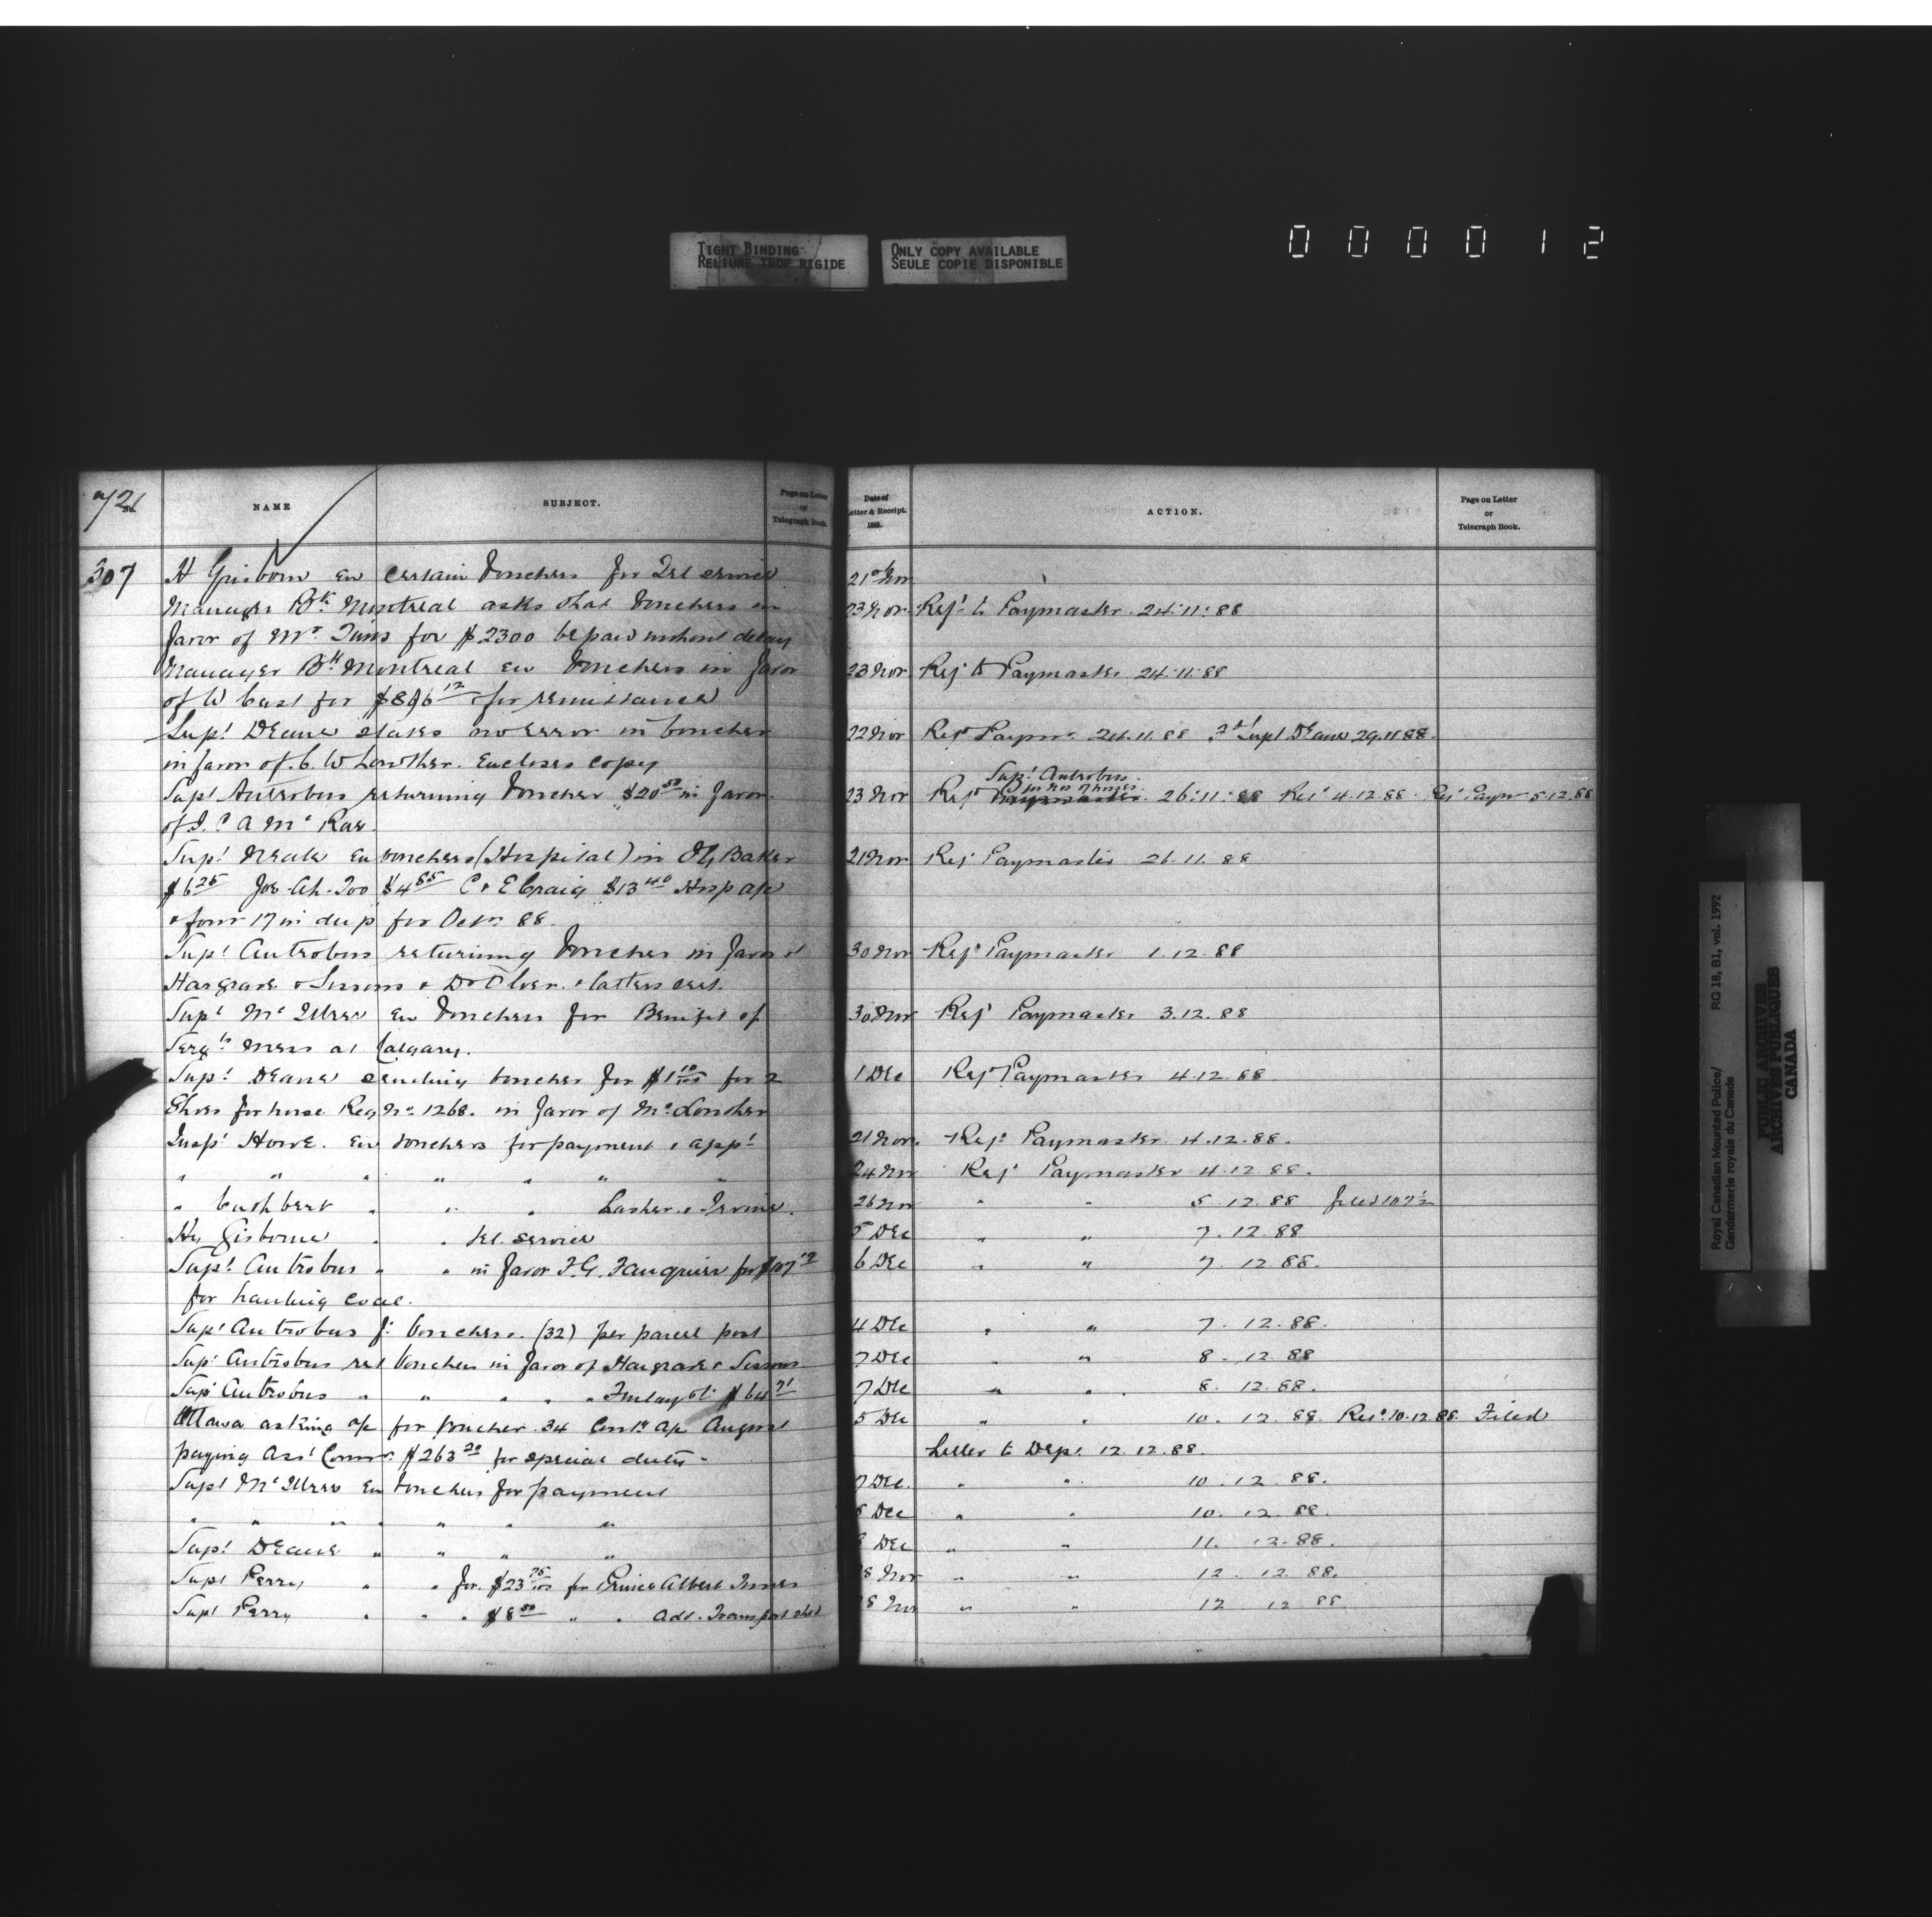 TIGHT BINDING
RELIURE TROP RIGIDE
ONLY COPY AVAILABLE
SEULE COPIE DISPONIBLE
000012
721
No.
NAME
SUBJECT.
Page on Letter
or
Telegraph Book.
Date of
Letter & Receipt.
188
ACTION.
Page on Letter
or
Telegraph Book.
307 H Gisborne en certain vouchers for Tel service 21st Nov
Manager Bk Montreal asks that vouchers in 23 Nov Refd to Paymaster 24.11.88
favor of Mr. Tims for $2300 be paid without delay
Manager Bk Montreal en vouchers in favor 23 Nov Refd to Paymaster 24.11.88
of W Cast for for remittance
Supt Deane states no error in voucher 22 Nov Refd Paymr 24.11.88 Supt Deane 29.11.88.
in favor of C. W Lowther. Encloses copy
Supt Antrobus.
Supt Antrobus returning voucher $20 50 in favor 23 Nov Refd Paymaster. 26.11.88 Retd 4.12.88. Refd Paymr 5.12.88
of Mc Rae.
Supt Neale en vouchers (Hospital) in I G Baker 21 Nov Refd Paymaster 26.11.88
$6 25 $4 85 C & E Craig $13 40 Hosp a/c
& form 17 in dup for Octr 88.
Supt Antrobus returning voucher in favor of 30 Nov Refd Paymaster 1.12.88
Hargrave & Sissons & Dr Olver. & latters cert.
Supt Mc Illree en vouchers for Benefit of 30 Nov Refd Paymaster 3.12.88
Sergts Mess at Calgary.
Supt Deane sending voucher for $1 10/100 for 2 1 Dec Refd Paymaster 4.12.88
Shoes for horse Reg No. 1268. in favor of
Inspr Howe. en vouchers for payment & appl 21 Nov. Refd Paymaster 4.12.88.
" " " " " " " 24 Nov Refd Paymaster 4.12.88.
" Cuthbert " " " Lasher & Irvine. 26 Nov " " 5.12.88
Hy Gisborne " " tel. service 5 Dec " " 7.12.88
Supt Antrobus " " in favor F. G. Fauquier for 6 Dec " " 7.12.88.
for hauling coal.
Supt Antrobus vouchers. (32) per parcel post 4 Dec " " 7.12.88.
Supt Antrobus ret vouchers in favor of Hargrave & Sissons 7 Dec " " 8.12.88
Supt Antrobus " " " " " $64 71 7 Dec " " 8.12.88.
Ottawa asking a/c for voucher 34 a/c August 5 Dec " " 10.12.88. Retd 10.12.88 Filed
paying Asst Commr. $263 20 for special duty - Letter to Dept. 12.12.88.
Supt Mc Illree en vouchers for payment 7 Dec. " " 10.12.88.
" " " " " " " 8 Dec " " 10.12.88.
Supt Deane " " " " Dec " " 11.12.88.
Supt Perry " " for $23 75/100 for Prince Albert 28 Nov " " 12.12.88.
Supt Perry " " " $8 50 " " Adv. Transport 28 Nov " " 12 12 88.
Royal Canadian Mounted Police/ RG 18, B1, vol. 1992
Gendarmerie royale du Canada
PUBLIC ARCHIVES
ARCHIVES PUBLIQUES
CANADA